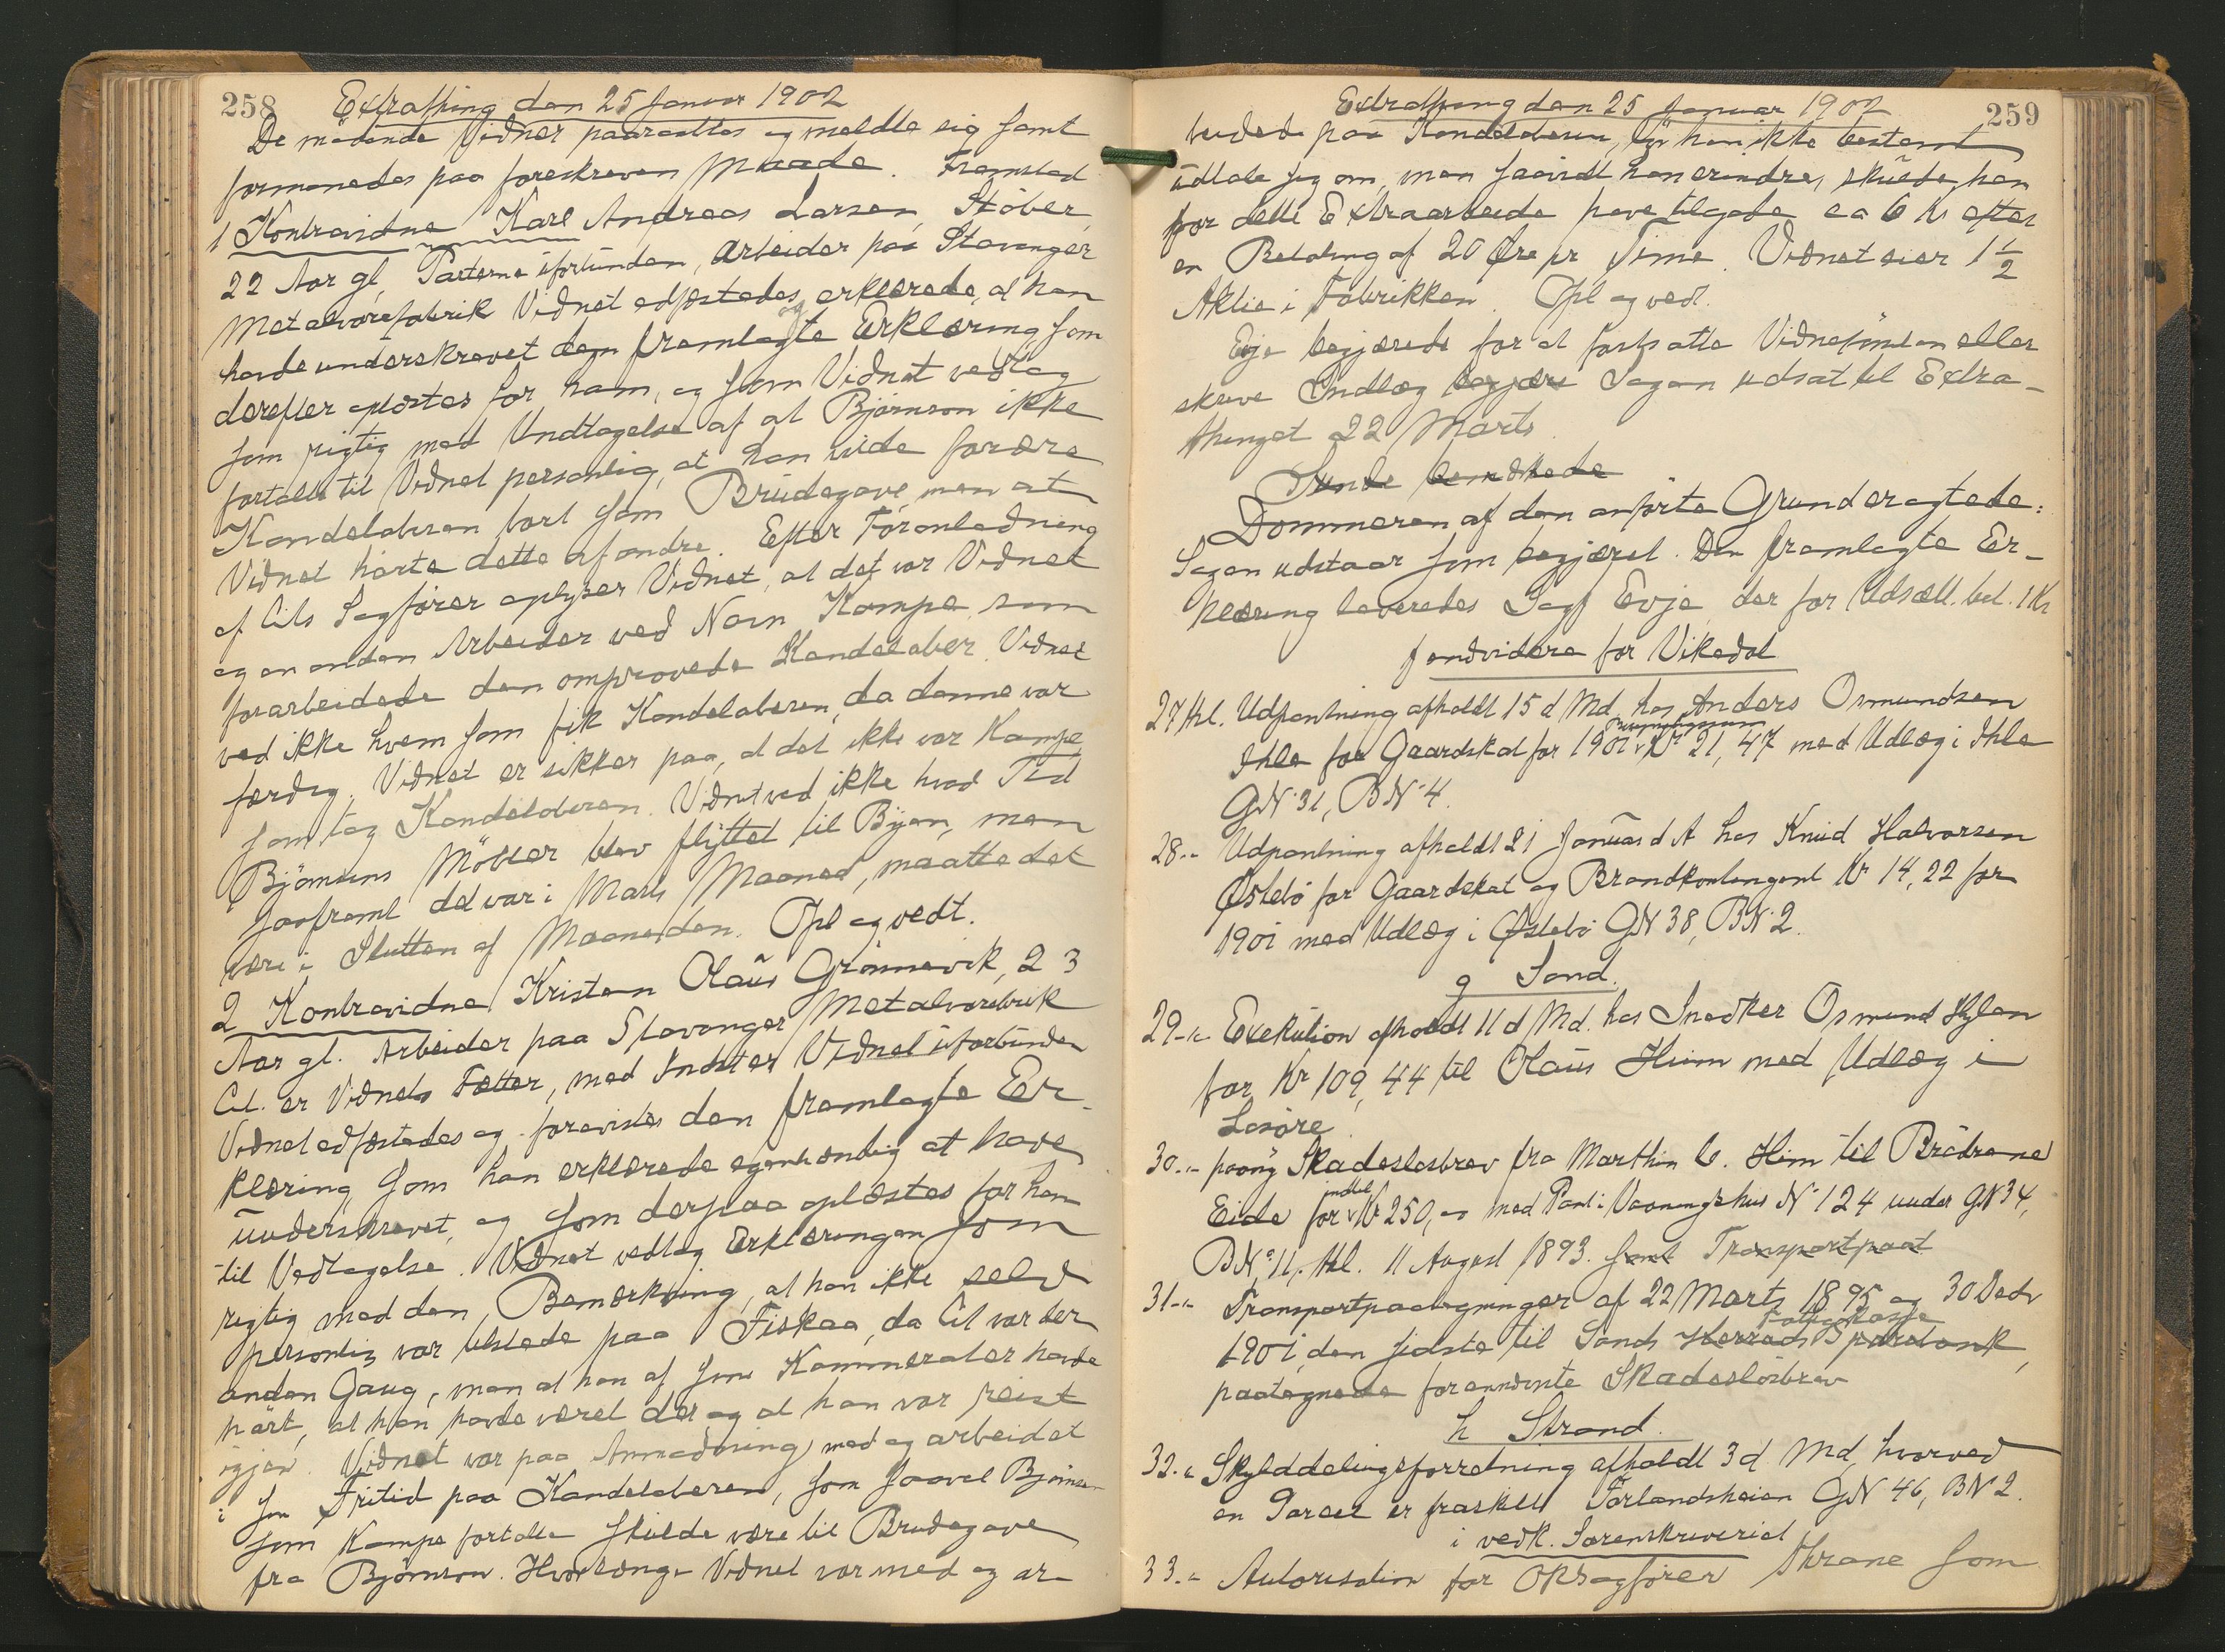 258 Extrathing den 25 Januar 1902
De mødende Vidner paaraabtes og meldte sig samt
formanedes paa foreskreven Maade. Fremstod
1 Kontravidne Karl Andreas Larsen, Støber,
22 Aar gl, Parterne uforbunden, Arbeider paa Stavanger
Metalvarefabrik Vidnet edfæstedes og erklærede, at han
havde underskrevet den fremlagte Erklæring, som
derefter oplæstes for ham, og som Vidnet vedtog
som rigtig med Undtagelse af at Bjørnson ikke
fortalte til Vidnet personlig, at han vilde forære
Kandelaberen bort som Brudegave, men at
Vidnet hørte dette af andre. Efter Foranledning
af Cits Sagfører oplyser Vidnet, at det var Vidnet
og en anden Arbeider ved Navn Kampe, som
forarbeidede den omprovede Kandelaber. Vidnet
ved ikke hvem som fik Kandelaberen, da denne var
færdig. Vidnet er sikker paa, at det ikke var Kampe
som tog Kandelaberen. Vidnet ved ikke hvad Tid
Bjørnsons Møbler blev flyttet til Byen, men
saafremt det var i Marts Maaned, maatte det
være i Slutten af Maaneden. Opl og vedt.
2 Kontravidne Kristen Olaus Grønnevik, 23
Aar gl. Arbeider paa Stavanger Metalvarebrik
Cit. er Vidnets Fætter, med Indstev Vidnet uforbunden
Vidnet edfæstedes og forevistes den fremlagte Er-
klæring som han erklærede egenhændig at have
underskrevet, og som derpaa oplæstes for ham
til Vedtagelse. Vidnet vedtog Erklæringen som
rigtig med den Bemærkning, at han ikke selv
personlig var tilstede paa Fiskaa, da Cit var der
anden Gang, men at han af sine Kammerater havde
hørt, at han havde været der og at han var reist
igjen. Vidnet var paa Anmodning med og arbeidet
i sin Fritid paa Kandelaberen, som saavel Bjørnson
som Kampe fortalte skulde være til Brudegave
fra Bjørnson. Hvorlænge Vidnet var med og ar-
Extrathing den 25 Januar 1902 259
beidede paa Kandelaberen, tør han ikke bestemt
udtale sig om, men saavidt han erindrer, skulde han
for dette Extraarbeide have tilgode ca 6 Kr efter
en Betaling af 20 Øre pr Time. Vidnet eier 1 1/2
Aktie i Fabrikken. Opl og vedt.
Evje begjærede for at fortsætte Vidneførslen eller
skrive Indlæg begjærs Sagen udsat til Extra-
thinget 22 Marts.
Sunde bemærkede
Dommeren af den anførte Grund eragtede:
Sagen udstaar som begjæret. Den fremlagte Er-
klæring leveredes Sagf Evje, der for Udsætt. bet. 1 Kr
f endvidere for Vikedal
27 Thl. Udpantning afholdt 15 d Md hos Anders Osmundsen
Ihle for Gaardskat for 1901 Kr 21,47 med Udlæg i Ihle
GN 31, BN 4.
28 - " - Udpantning afholdt 21 Januar d A hos Knud Halvorsen
Østebø for Gaardskat og Brandkontingent Kr 14,22 for
1901 med Udlæg i Østebø GN 38, BN 2.
g Sand.
29 - " - Exekution afholdt 11 d Md. hos Snedker Osmund Hylen
for Kr 109,44 til Olaus Hiim med Udlæg i
Løsøre
30 - " - paany Skadesløsbrev fra Marthin C. Hiim til Brødrene
Eide for indtil Kr 250,00 med Pant i Vaaningshus N 124 under GN 34,
BN 11, thl. 11 August 1893. samt Transportpaat
31 - " - Transportpaategninger af 22 Marts 1895 og 30 Decbr
1901, den sidste til Sands Herreds Sparebank
paategnede forannævnte Skadesløsbrev
h Strand.
32 - " Skylddelingsforretning afholdt 3 d Md, hvorved
en Parcel er fraskilt Forlandsheien GN 46, BN 2.
i vedk. Sorenskriveriet
33 - " Autorisation for ORSagfører Thrane som